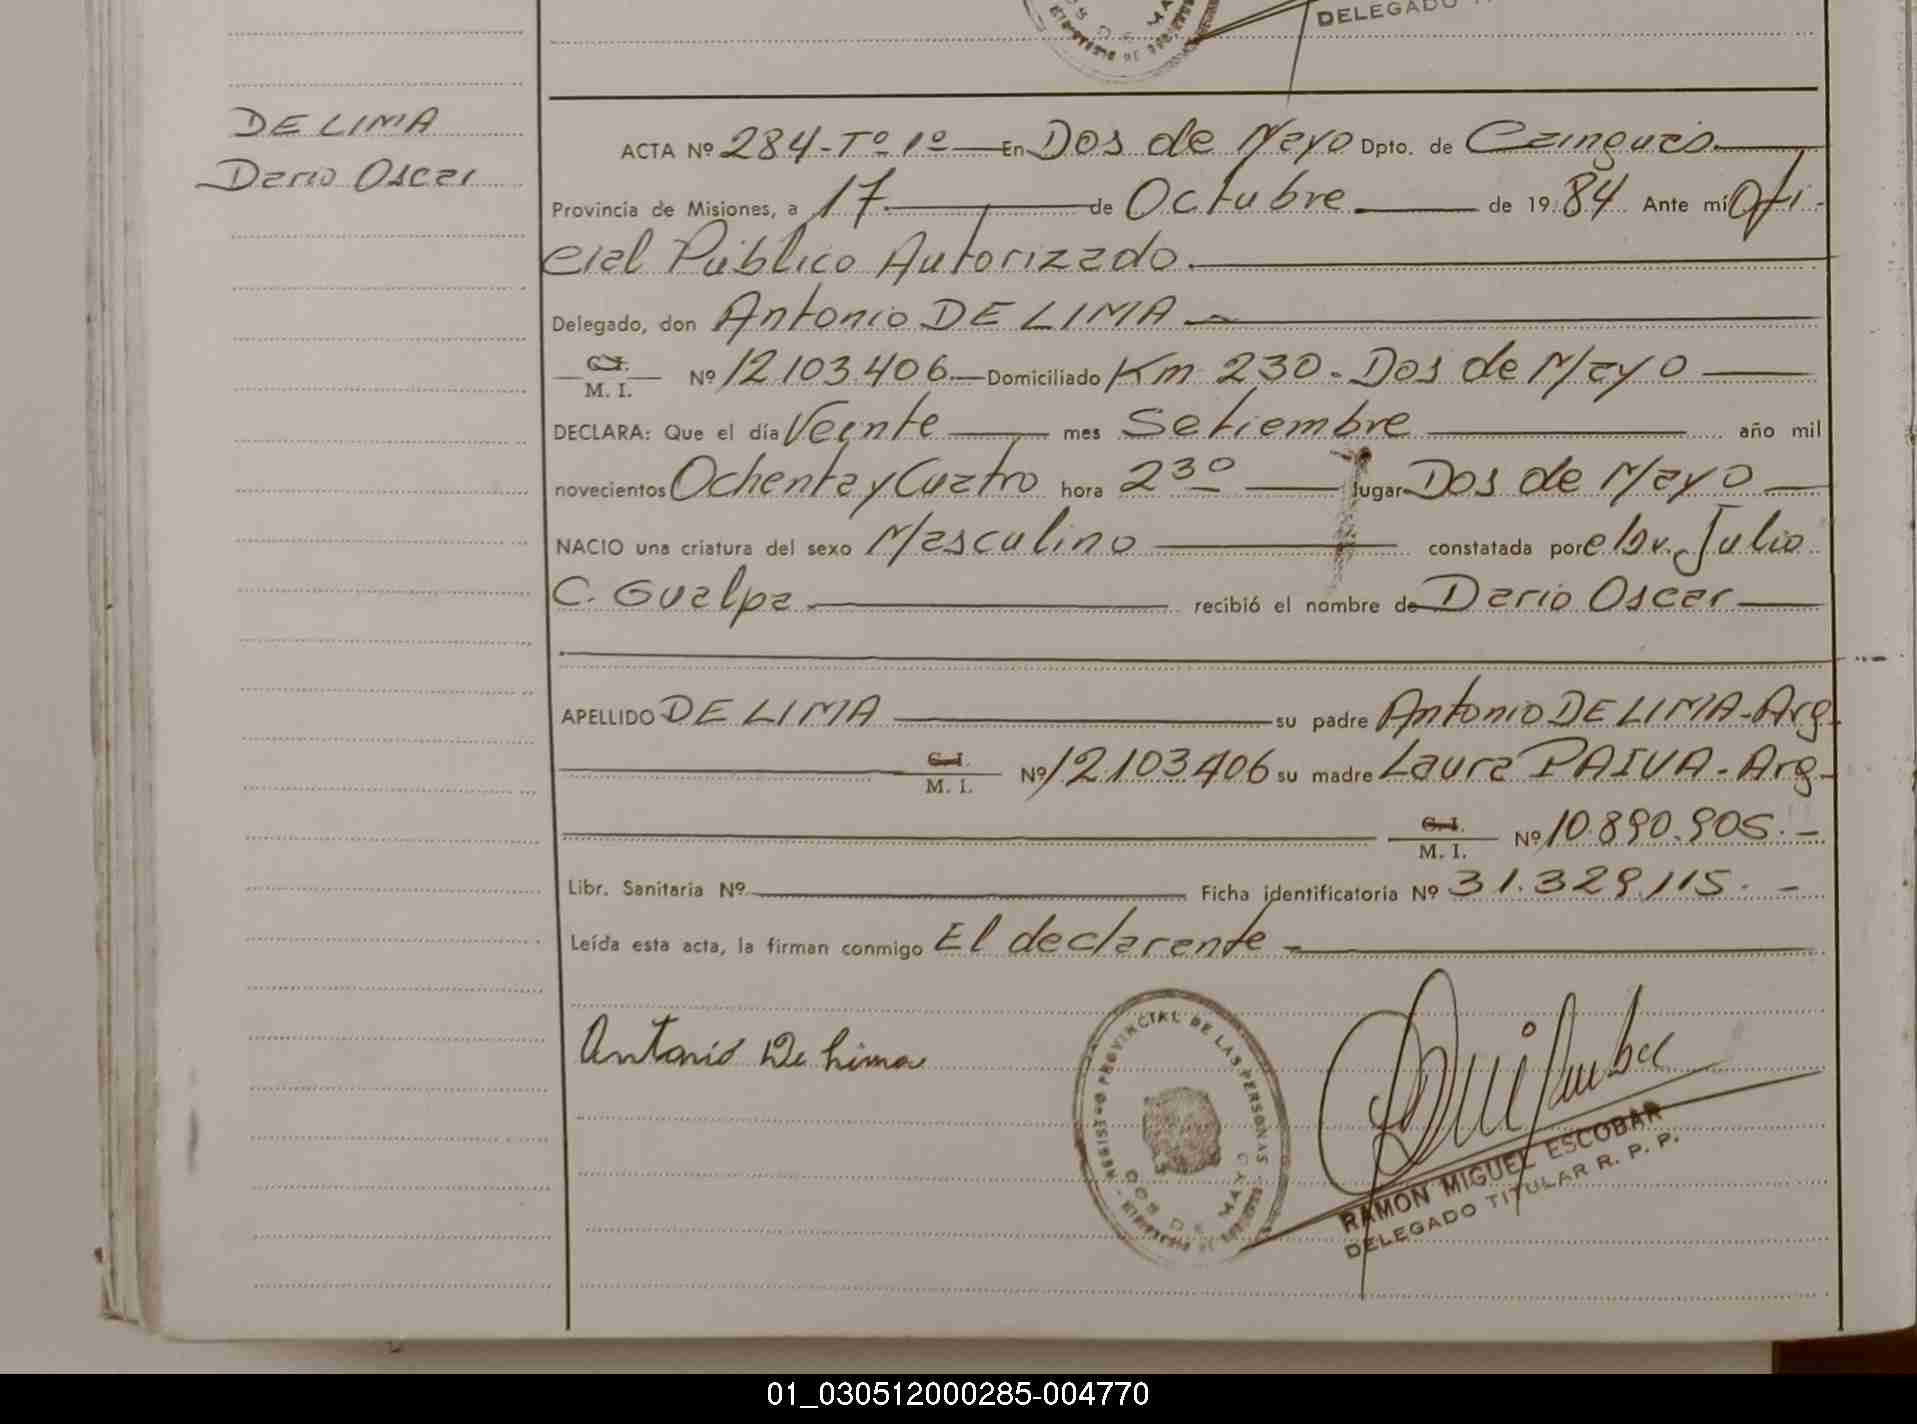 DELEGADO
DE LIMA
Dario Oscar
ACTA Nº 284-Tº 1º En Dos de Mayo Dpto. de Cainguás
Provincia de Misiones, a 17 de Octubre de 1984 Ante mí Ofi-
cial Público Autorizado.
Delegado, don Antonio DE LIMA
C.I.
M. I. Nº 12.103.406 Domiciliado Km 230 - Dos de Mayo
DECLARA: Que el día Veinte mes Setiembre año mil
novecientos Ochenta y Cuatro hora 23º lugar Dos de Mayo
NACIO una criatura del sexo Masculino constatada por el Dr. Julio
C. Gualpa recibió el nombre de Dario Oscar
APELLIDO DE LIMA su padre Antonio DE LIMA-Arg.
C.I.
M. I. Nº 12.103.406 su madre Laura PAIVA-Arg-
C.I.
M. I. Nº 10.890.905.-
Libr. Sanitaria Nº Ficha identificatoria Nº 31.329.115.-
Leída esta acta, la firman conmigo El declarante-
Antonio De Lima
REGISTRO PROVINCIAL DE LAS PERSONAS
DOS DE MAYO
RAMON MIGUEL ESCOBAR
DELEGADO TITULAR R. P. P.
01_030512000285-004770